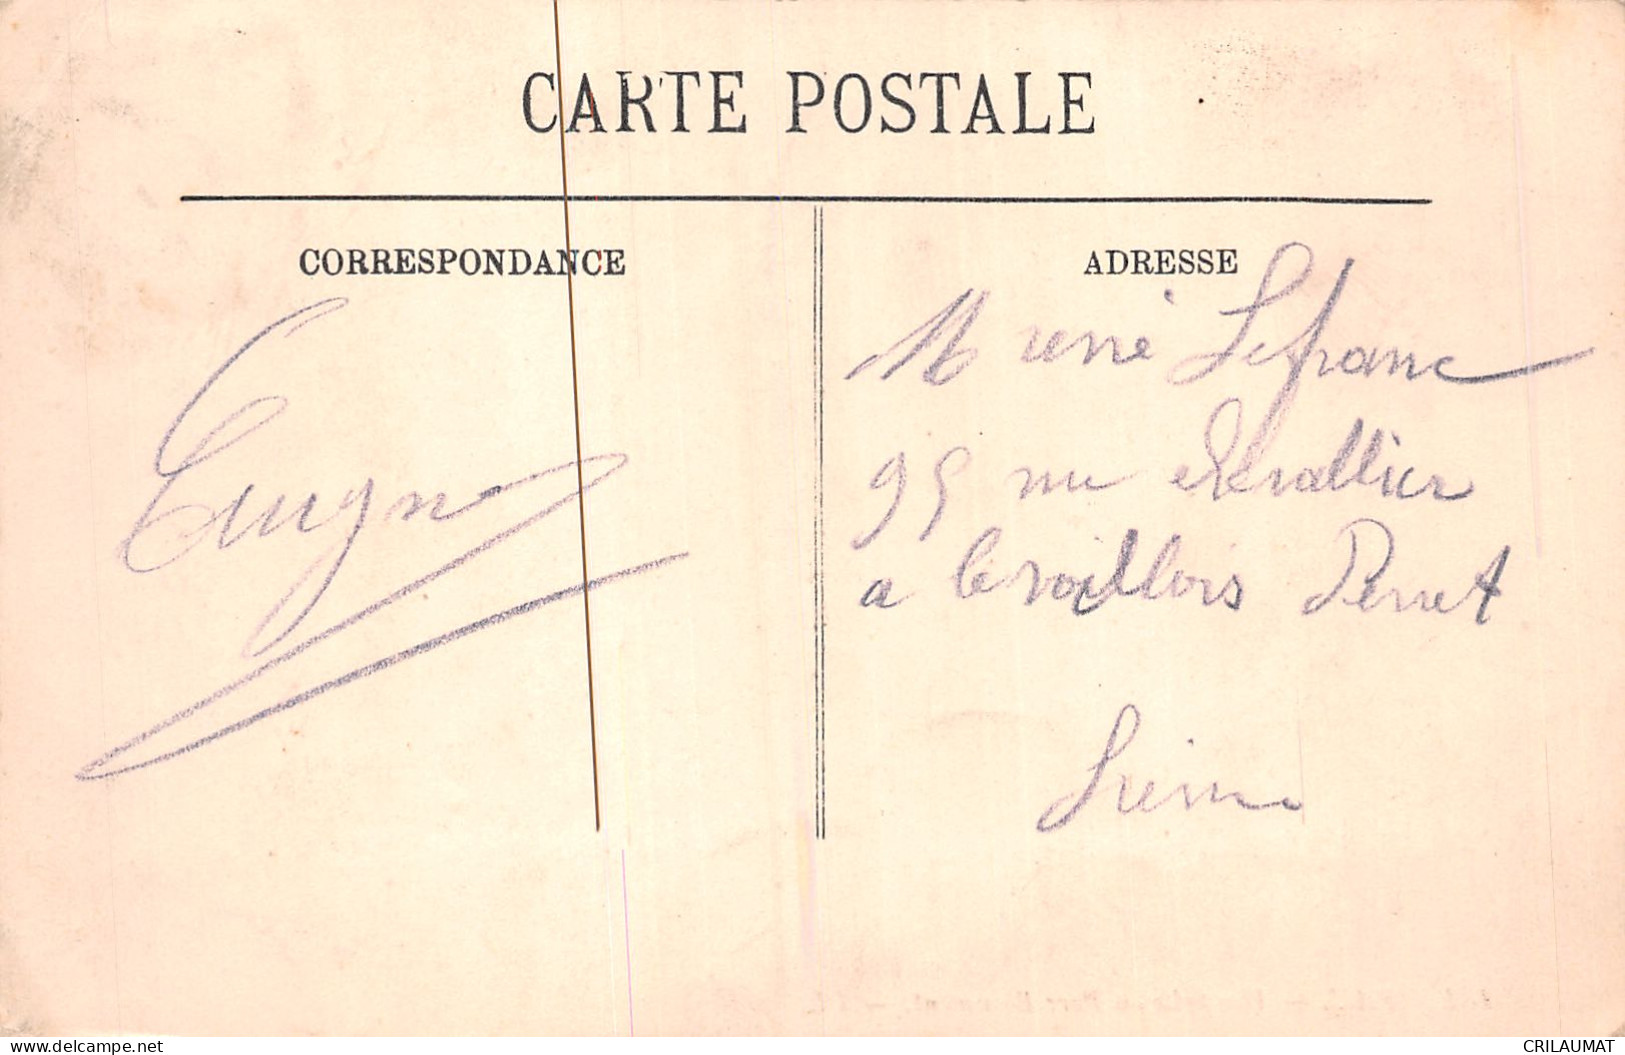 CARTE POSTALE
CORRESPONDANCE
ADRESSE
M rené Lefranc
95 rue chevallier
a levoillois Perret
Seine
delcampe.net
CRILAUMAT